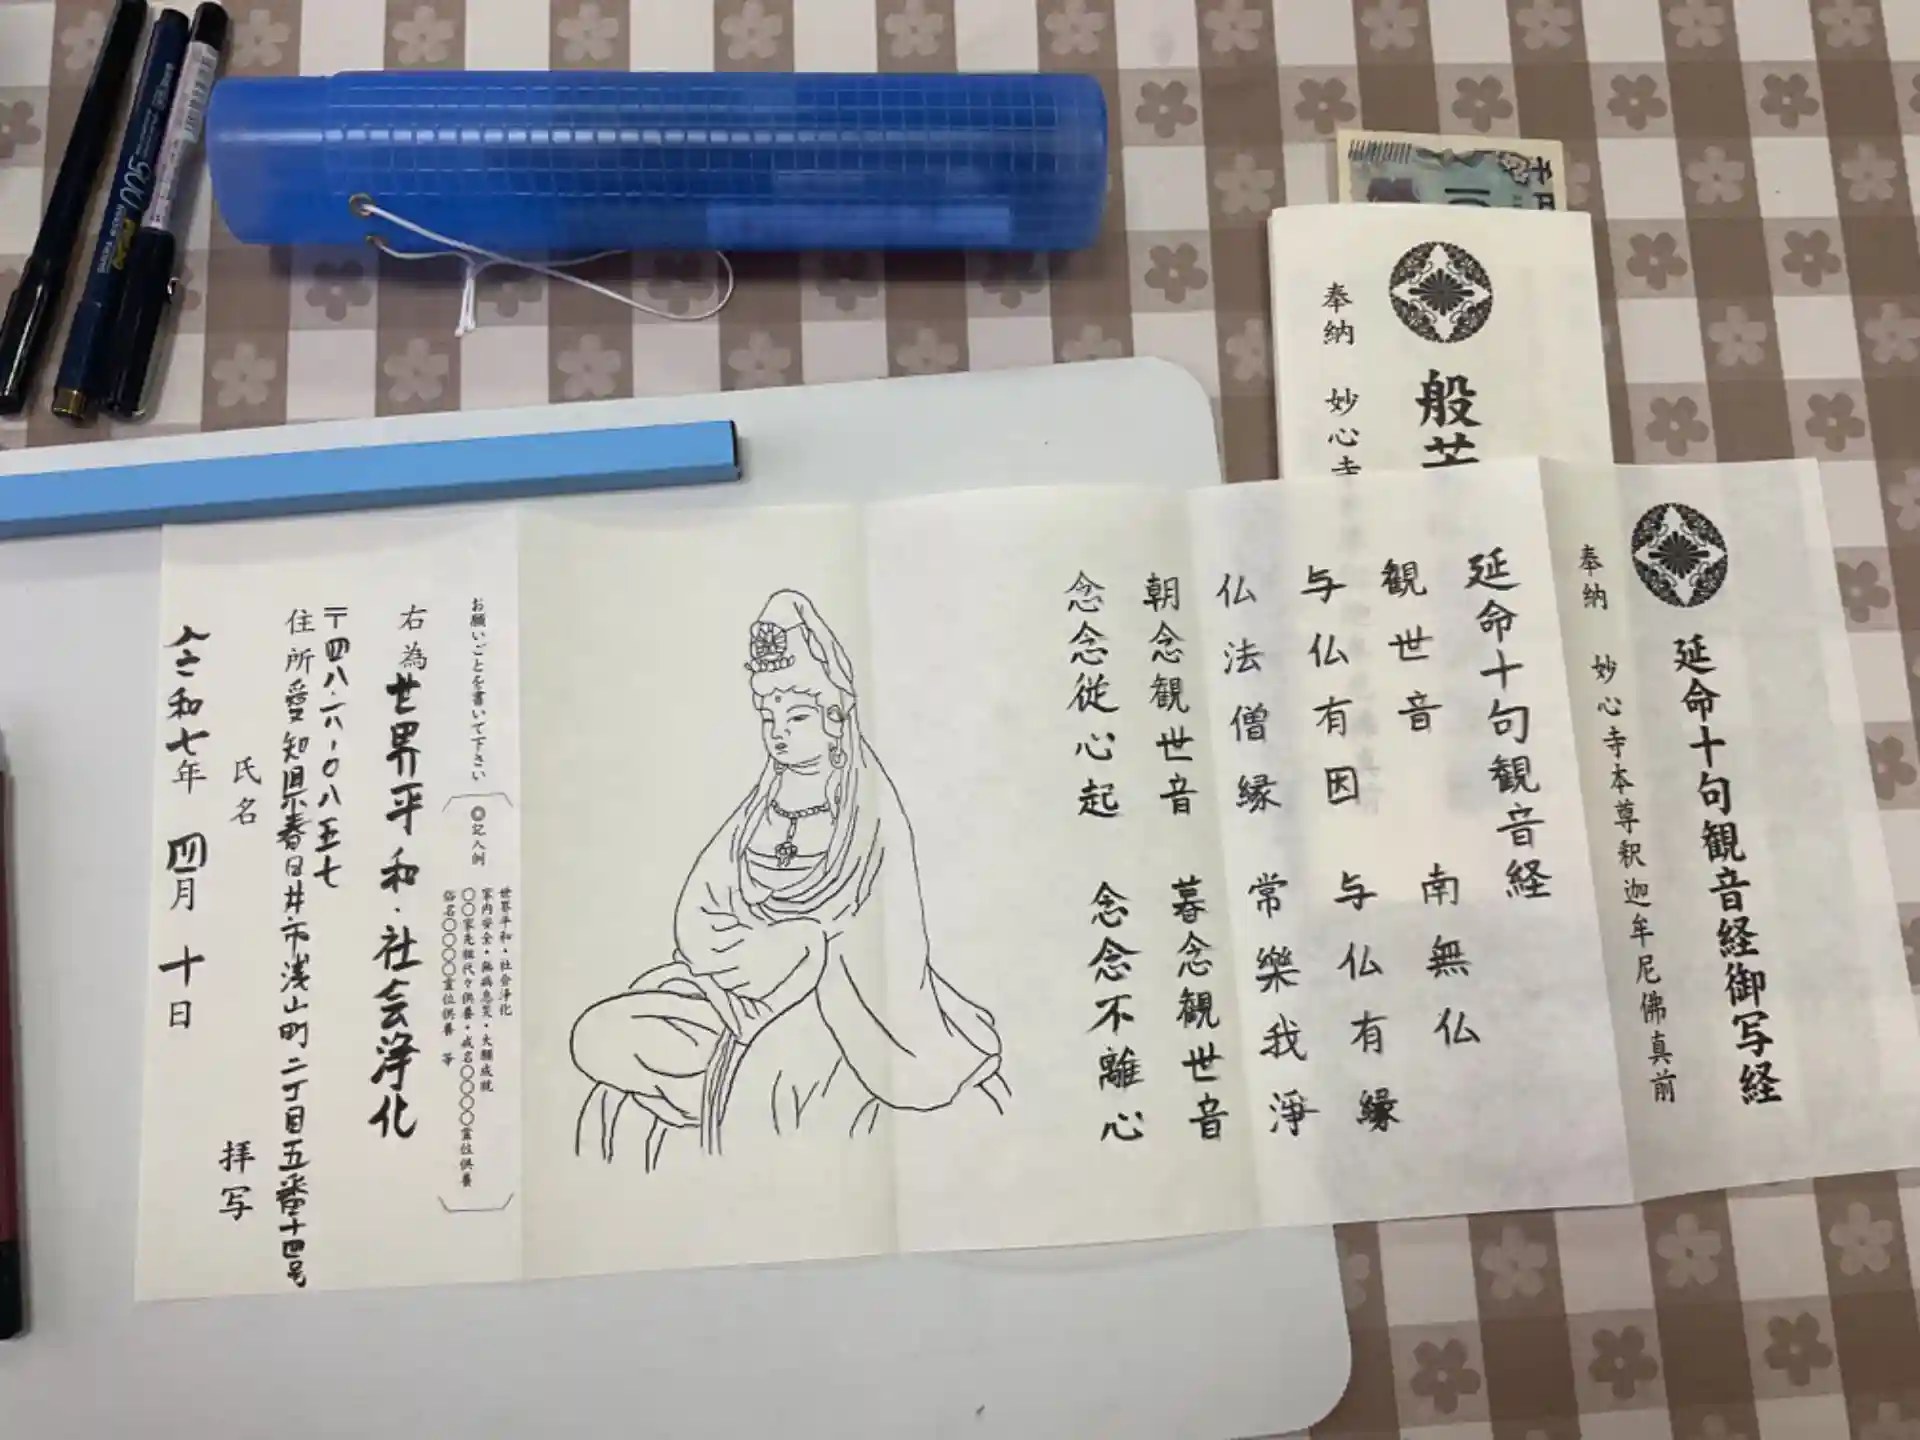 延命十句観音経御写経
奉納 妙心寺本尊釈迦牟尼佛真前
延命十句観音経
観世音 南無仏
与仏有因 与仏有縁
仏法僧縁 常樂我浄
朝念観世音 暮念観世音
念念従心起 念念不離心
お願いごとを書いて下さい
◎記入例
世界平和・社会浄化
家内安全・無病息災・大願成就
〇〇家先祖代々供養・戒名〇〇〇〇霊位供養
俗名〇〇〇〇霊位供養 等
右為世界平和・社会浄化
〒四八六-〇八五七
住所愛知県春日井市浅山町二丁目五番十四号
氏名 拝写
令和七年 四月 十日
奉納 妙心寺
般若
千円